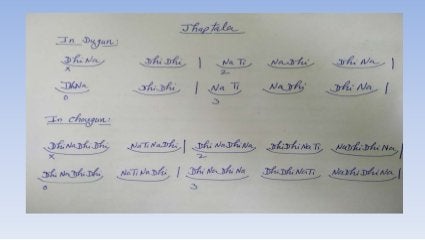 Jhaptala
In Dugun:
DhiNa DhiDhi | NaTi NaDhi DhiNa |
x 2
DhiNa DhiDhi | NaTi NaDhi DhiNa |
0 3
In Chaugun:
DhiNaDhiDhi NaTiNaDhi | DhiNaDhiNa DhiDhiNaTi NaDhiDhiNa |
x 2
DhiNaDhiDhi NaTiNaDhi | DhiNaDhiNa DhiDhiNaTi NaDhiDhiNa |
0 3